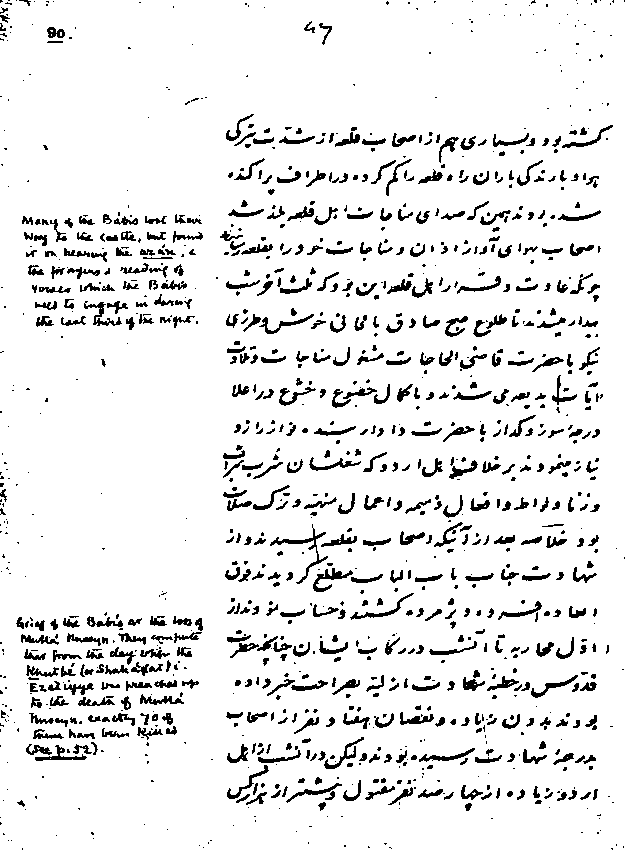 90.
47
کشته بود و بسیاری هم از اصحاب قلعه از شدّت تیرگی
هوا و بارندگی باران راه قلعه را گم کرده در اطراف پراکنده
شده بودند همین که صدای مناجات اهل قلعه بلند شد
اصحاب بهوای آواز اذان و مناجات خود را بقلعه
چونکه عادت و اهل قلعه این بود که ثلث آخر شب
بیدار میشدند تا طلوع صبح صادق با الحانی خوش و طرزی
نیکو با حضرت قاضی الحاجات مشغول مناجات و تلاوت
آیات بدیعه می شدند و با کمال خضوع و خشوع در اعلا
درجهٔ سوز و گداز با حضرت دادار راز و
نیاز مینمودند بر خلاف اهل اردو که شغلشان شرب
و زنا و لواط و افعال ذمیمه و اعمال منهیّه و ترک صلات
بود خلاصه بعد از آنیکه اصحاب بقلعه رسیدند و از
شهادت جناب باب الباب مطلع گردیدند فوق
العاده افسرده و پژمرده گشتند و حساب نمودند از
اوّل محاربه تا آنشب در رکاب ایشان چنانچه حضرت
قدّوس در خطبهٔ شهادت ازلیّه بصراحت خبر داده
بودند بدون زیاده و نقصان هفتاد نفر از اصحاب
بدرجهٔ شهادت رسیده بودند ولیکن در آنشب از اهل
اردو زیاده از چهار صد نفر مقتول و بیشتر از هزار کس
Many of the Bábís lost their
way to the Castle, but found
it on hearing the azán, &
the prayers & reading of
verses which the Bábís
used to engage in during
the last third of the night.
Grief of the Bábís at the loss of
Mullá Huseyn. They compute
that from the day when the
Khutbé (or Shahádat) i-
Ezelíyyé was preached up
to the death of Mullá
Huseyn, exactly 70 of
them have been killed
(See p. 52).